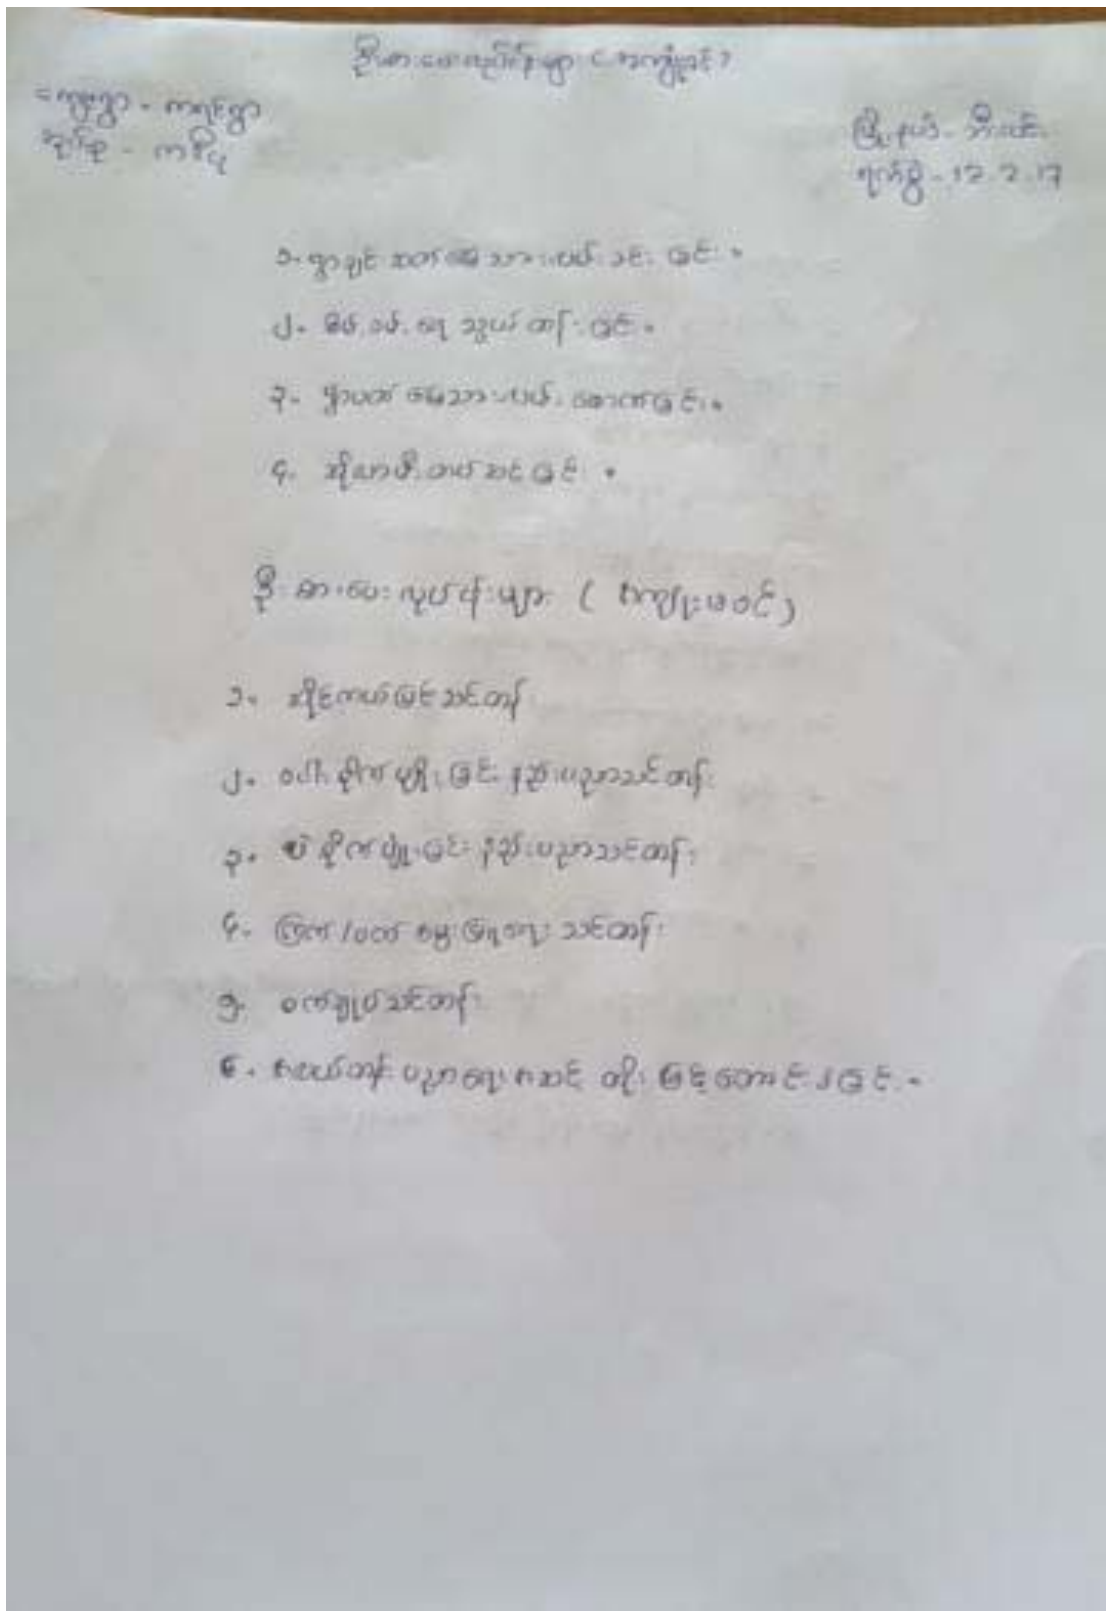 ဦးစားပေးလုပ်ငန်းများ ( အကျုံးဝင် )
ကျေးရွာ - ကရင်ရွာ
အုပ်စု -
မြို့နယ် - ဘီးလင်း
ရက်စွဲ - 12.2.17
၁. ရွာချင်းဆက် မြေသားလမ်းခင်းခြင်း။
၂. စိမ့်စမ်းရေ သွယ်တန်းခြင်း။
၃. ရွာပတ် မြေသားလမ်း ဖောက်ခြင်း။
၄. ထရန်စဖော်မာ တပ်ဆင်ခြင်း။
ဦးစားပေးလုပ်ငန်းများ ( အကျုံးမဝင် )
၁. ဆိုင်ကယ်ပြင်သင်တန်း
၂. စပါး စိုက်ပျိုးခြင်း နည်းပညာသင်တန်း
၃. ပဲ စိုက်ပျိုးခြင်း နည်းပညာသင်တန်း
၄. ကြက် / ဝက် မွေးမြူရေး သင်တန်း
၅. စက်ချုပ်သင်တန်း
၆. အလယ်တန်း ပညာရေးအဆင့် တိုးမြှင့်တောင်းခံခြင်း။